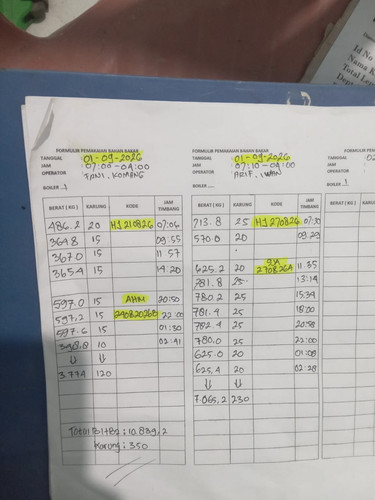 FORMULIR PEMAKAIAN BAHAN BAKAR
TANGGAL 01-09-2026
JAM 07:00-07:00
OPERATOR TONI, KOMANG
BOILER 1
BERAT (KG) KARUNG KODE JAM TIMBANG
486.2 20 HJ 210826 07:06
364.8 15 09:55
367.0 15 11:57
365.4 15 14:20
597.0 15 AHM 20:50
597.2 15 29082026B 22:00
597.6 15 01:30
398.8 10 02:41
↓ ↓
3.774 120
Total B1+B2: 10.839,2
Karung: 350
FORMULIR PEMAKAIAN BAHAN BAKAR
TANGGAL 01-09-2026
JAM 07:10-07:00
OPERATOR ARIF, IWAN
BOILER
BERAT (KG) KARUNG KODE JAM TIMBANG
713.8 25 HJ 270826 07:30
570.0 20 09:29
625.2 20 270826A 11:35
781.8 25 13:14
780.2 25 15:39
781.4 25 18:00
782.4 25 20:58
780.0 25 22:00
625.0 20 01:08
625.4 20 02:28
↓ ↓
7.065.2 230
BOILER 1
BERAT (KG)
Id No
Nama K
Total